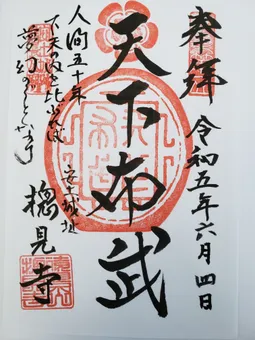 奉拝
令和五年六月四日
天下布武
安土城址
人間五十年
下天の内を比ぶれば
夢幻のごとくなり
摠見寺